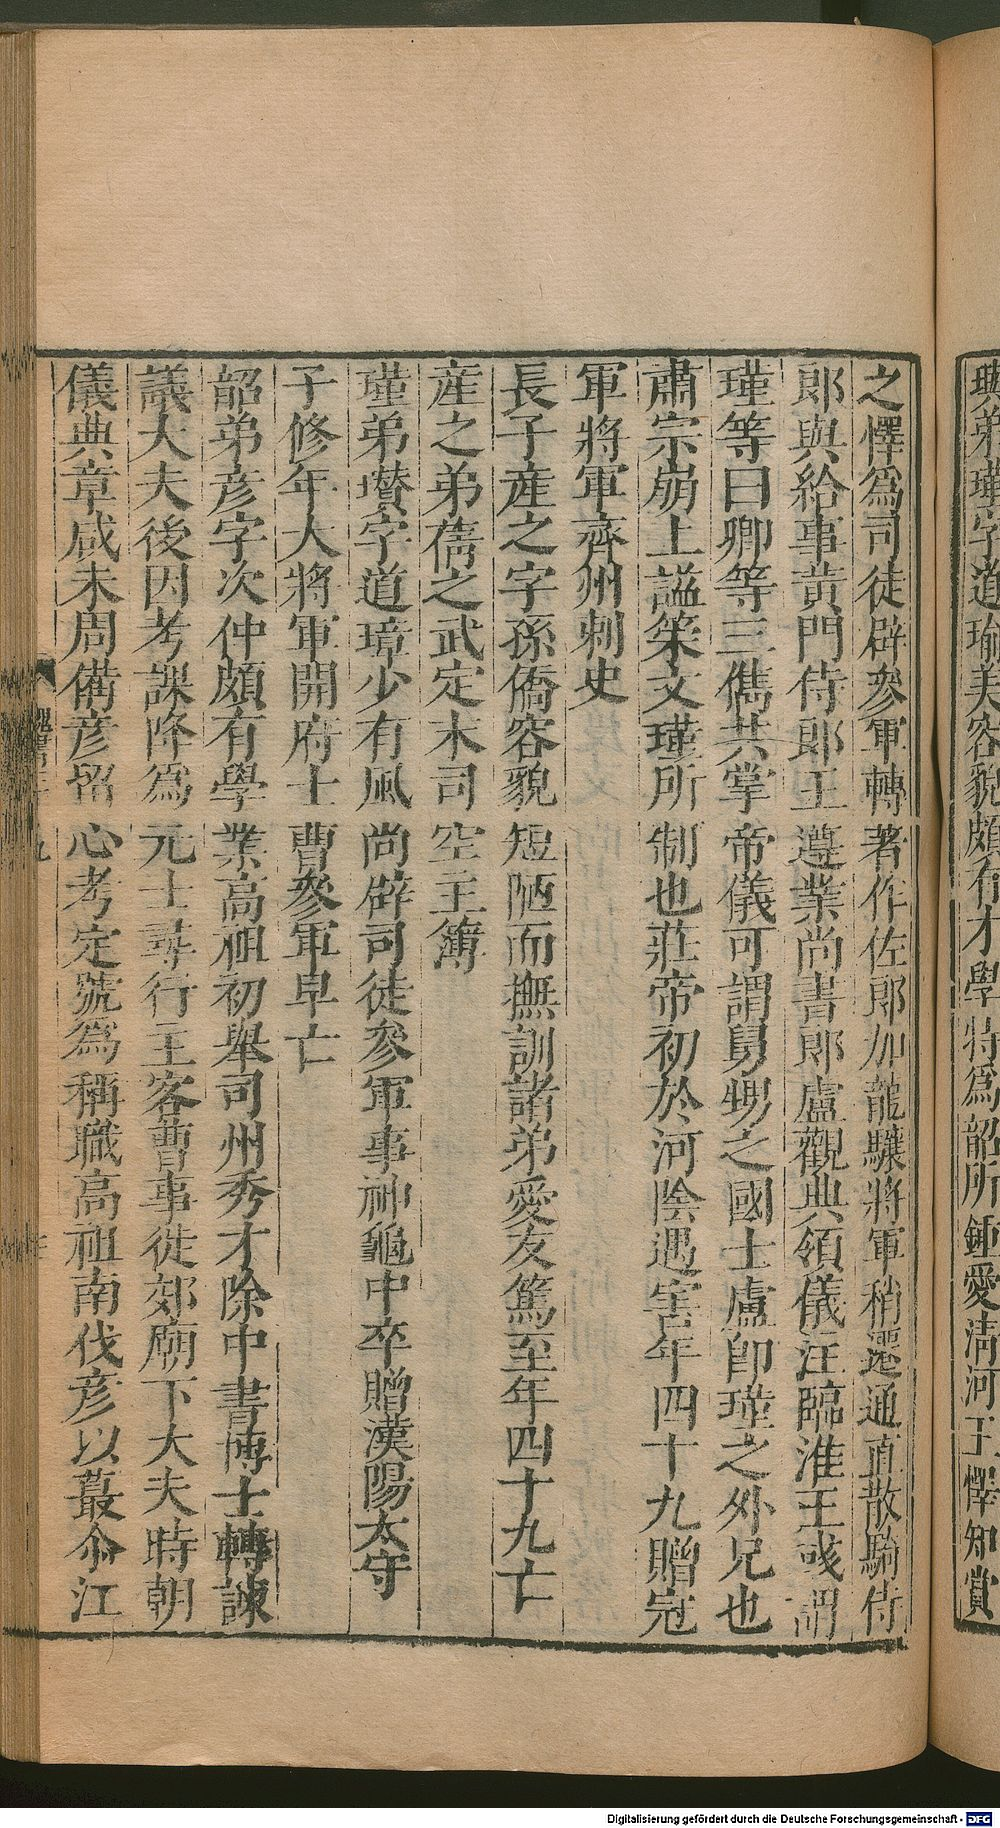 璵弟瑾字道瑜美容貌頗有才學特爲韶所鍾愛清河王懌知賞
之懌爲司徒辟參軍轉著作佐郎加龍驤將軍稍遷通直散騎侍
郎與給事黃門侍郎王遵業尚書郎盧觀典領儀注臨淮王彧謂
瑾等曰卿等三儁共掌帝儀可謂舅甥之國士盧卽瑾之外兄也
肅宗崩上諡筞文瑾所制也莊帝初於河陰遇害年四十九贈冠
軍將軍齊州刺史
長子産之字孫僑容貌短陋而撫訓諸弟愛友篤至年四十九亡
産之弟蒨之武定末司空主簿
瑾弟瓚字道璋少有風尚辟司徒參軍事神龜中卒贈漢陽太守
子修年大將軍開府士曹參軍早亡
韶弟彦字次仲頗有學業高祖初舉司州秀才除中書博士轉諫
議大夫後因考課降爲元士尋行主客曹事徙郊廟下大夫時朝
儀典章咸未周備彦留心考定號爲稱職高祖南伐彦以蕞尒江
Digitalisierung gefördert durch die Deutsche Forschungsgemeinschaft - DFG